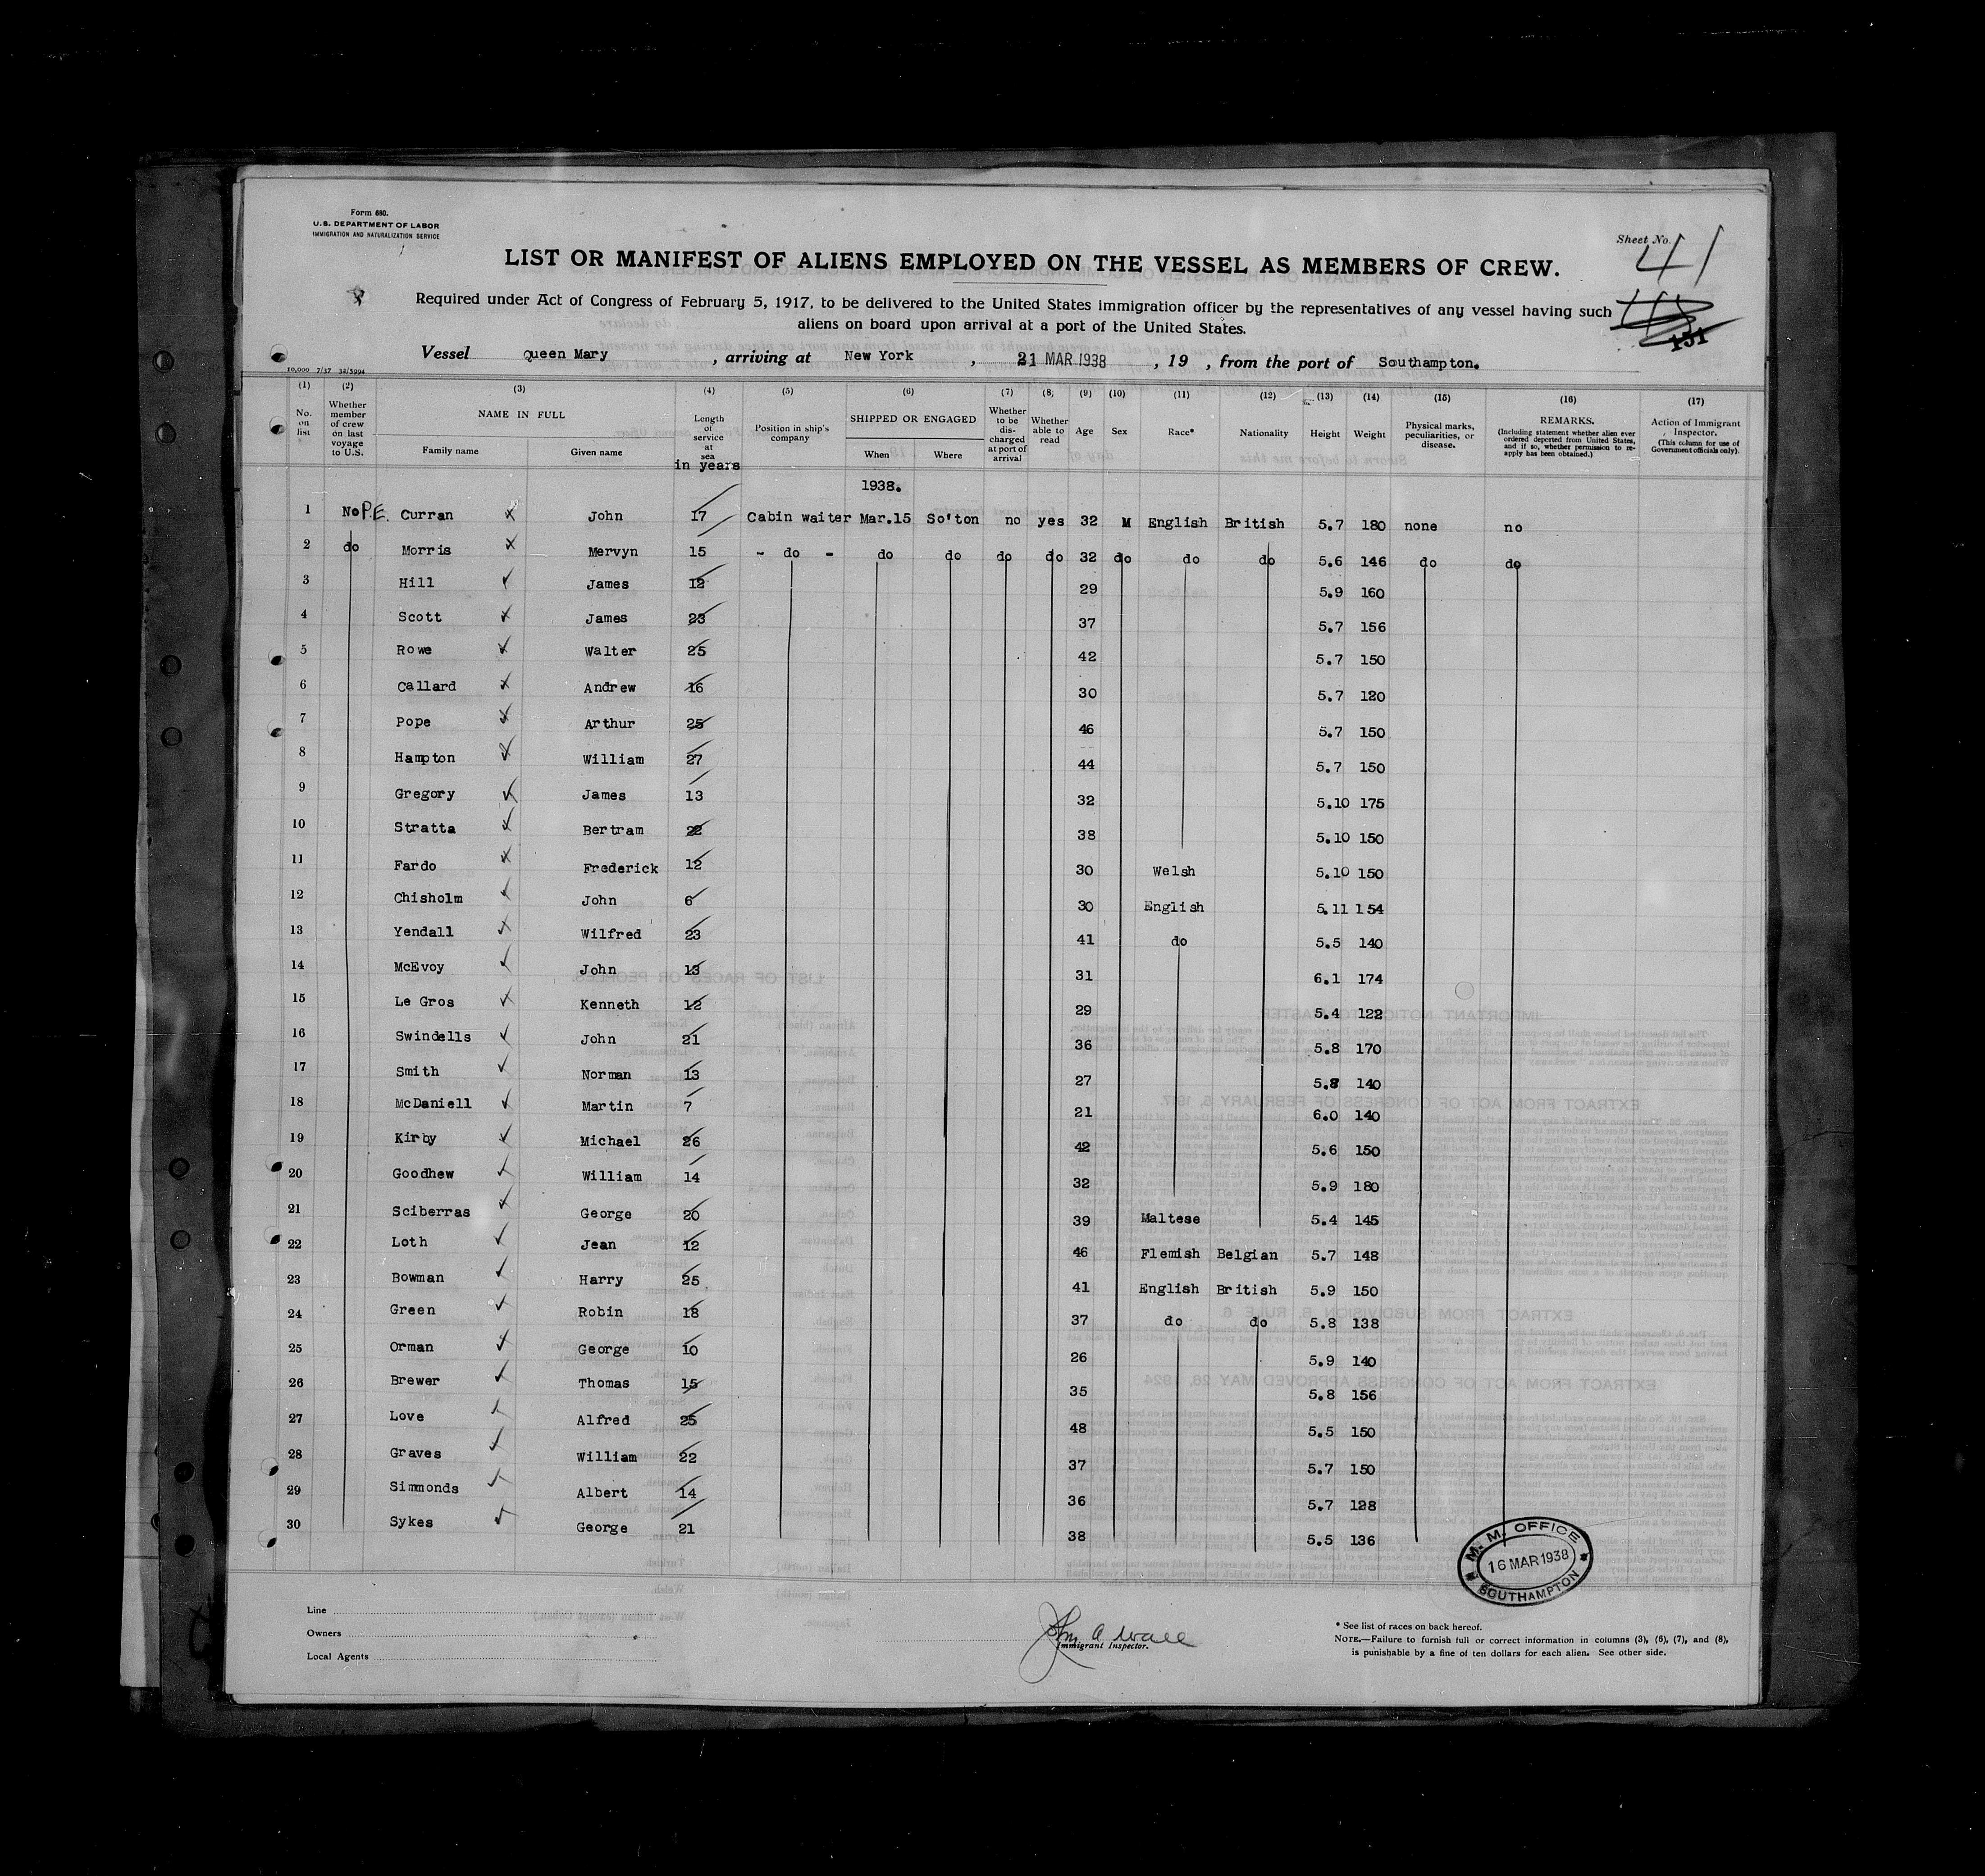 Form 680.
U.S. DEPARTMENT OF LABOR
IMMIGRATION AND NATURALIZATION SERVICE
Sheet No. 41
LIST OR MANIFEST OF ALIENS EMPLOYED ON THE VESSEL AS MEMBERS OF CREW.
Required under Act of Congress of February 5, 1917, to be delivered to the United States immigration officer by the representatives of any vessel having such
aliens on board upon arrival at a port of the United States.
151
Vessel Queen Mary, arriving at New York, 21 MAR 1938, 19 , from the port of Southampton.
10,000 7/37 32/5994
(1) (2) (3) (4) (5) (6) (7) (8) (9) (10) (11) (12) (13) (14) (15) (16) (17)
No. on list
Whether member of crew on last voyage to U.S.
NAME IN FULL
Family name
Given name
Length of service at sea
in years
Position in ship's company
SHIPPED OR ENGAGED
When
Where
Whether to be discharged at port of arrival
Whether able to read
Age
Sex
Race*
Nationality
Height
Weight
Physical marks, peculiarities, or disease.
REMARKS.
(Including statement whether alien ever ordered deported from United States, and if so, whether permission to re-apply has been obtained.)
Action of Immigrant Inspector.
(This column for use of Government officials only).
1938.
1 No P.E. Curran John 17 Cabin waiter Mar.15 So'ton no yes 32 M English British 5.7 180 none no
2 do Morris Mervyn 15 - do - do do do do 32 do do do 5.6 146 do do
3 Hill James 12 29 5.9 160
4 Scott James 23 37 5.7 156
5 Rowe Walter 25 42 5.7 150
6 Callard Andrew 16 30 5.7 120
7 Pope Arthur 25 46 5.7 150
8 Hampton William 27 44 5.7 150
9 Gregory James 13 32 5.10 175
10 Stratta Bertram 22 38 5.10 150
11 Fardo Frederick 12 30 Welsh 5.10 150
12 Chisholm John 6 30 English 5.11 154
13 Yendall Wilfred 23 41 do 5.5 140
14 McEvoy John 13 31 6.1 174
15 Le Gros Kenneth 12 29 5.4 122
16 Swindells John 21 36 5.8 170
17 Smith Norman 13 27 5.8 140
18 McDaniell Martin 7 21 6.0 140
19 Kirby Michael 26 42 5.6 150
20 Goodhew William 14 32 5.9 180
21 Sciberras George 20 39 Maltese 5.4 145
22 Loth Jean 12 46 Flemish Belgian 5.7 148
23 Bowman Harry 25 41 English British 5.9 150
24 Green Robin 18 37 do do 5.8 138
25 Orman George 10 26 5.9 140
26 Brewer Thomas 15 35 5.8 156
27 Love Alfred 25 48 5.5 150
28 Graves William 22 37 5.7 150
29 Simmonds Albert 14 36 5.7 128
30 Sykes George 21 38 5.5 136
M. M. OFFICE
16 MAR 1938
SOUTHAMPTON
Line
Owners
Local Agents
John A Wall
Immigrant Inspector.
* See list of races on back hereof.
NOTE.—Failure to furnish full or correct information in columns (3), (6), (7), and (8),
is punishable by a fine of ten dollars for each alien. See other side.